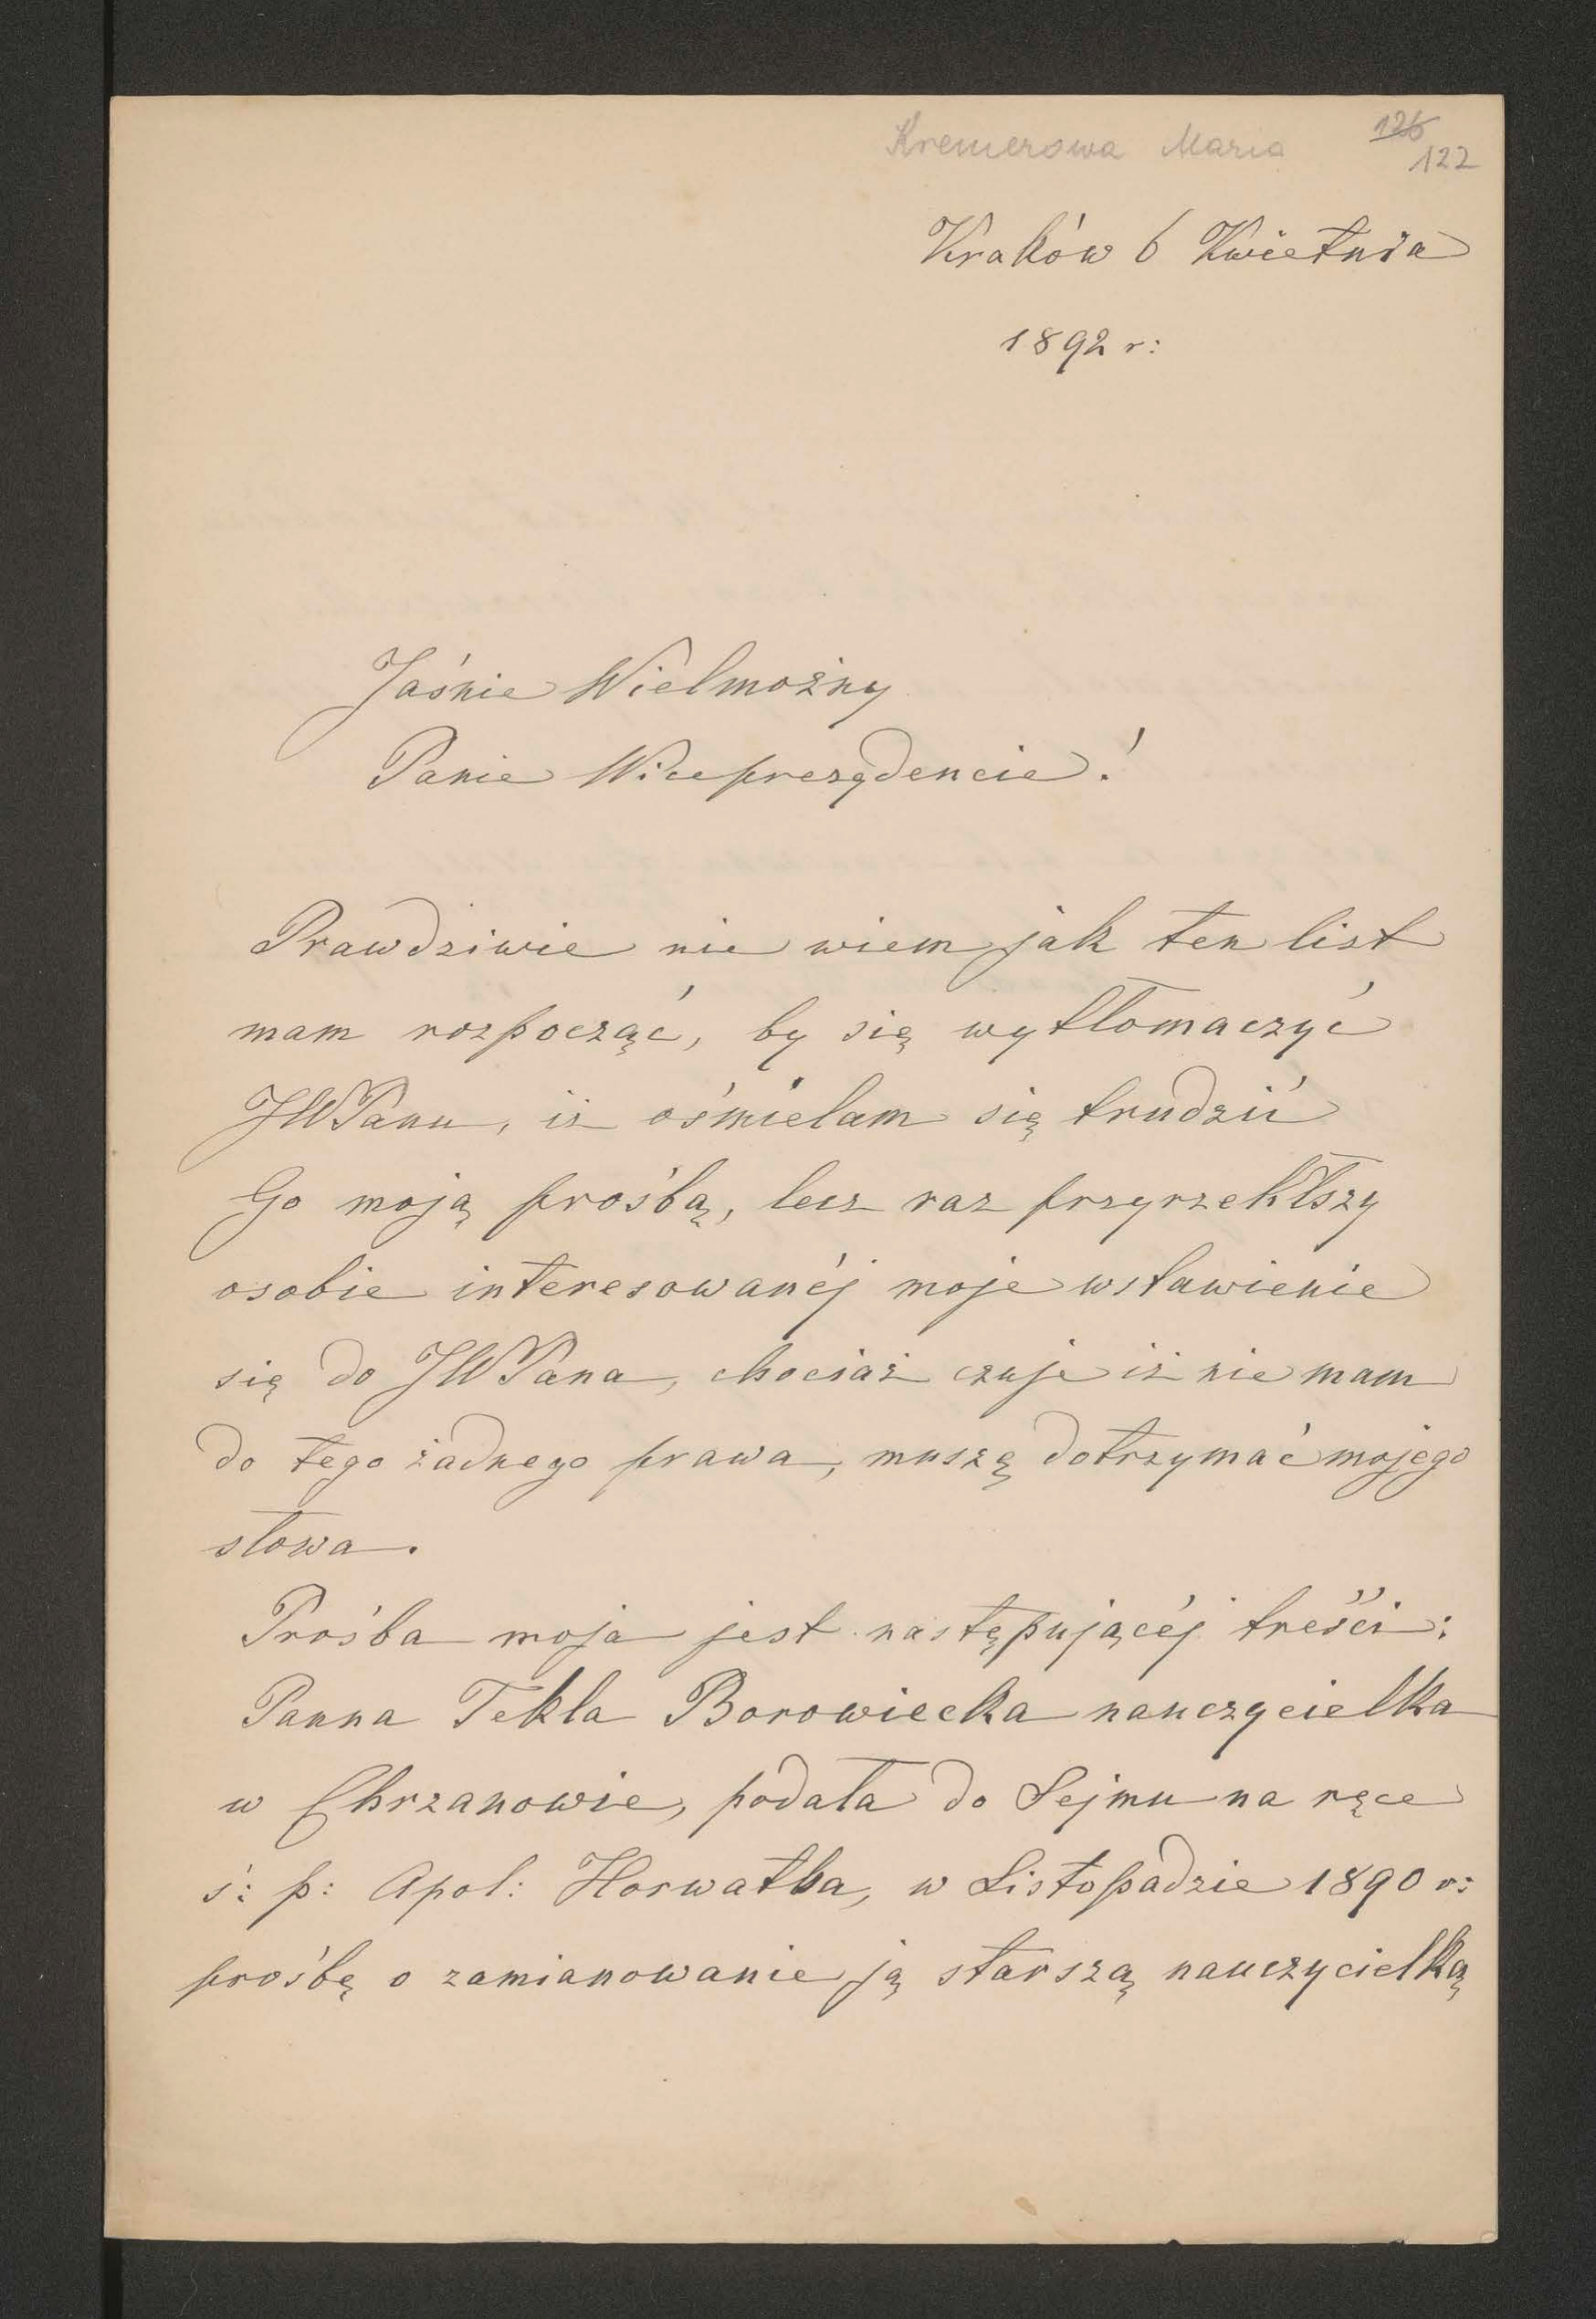 Kremerowa Maria
126
122
Kraków 6 Kwietnia
1892 r:
Jaśnie Wielmożny
Panie Wiceprezydencie!
Prawdziwie nie wiem jak ten list
mam rozpocząć, by się wytłomaczyć
JWPanu, iż ośmielam się trudzić
Go moją prośbą, lecz raz przyrzekłszy
osobie interesowanéj moje wstawienie
się do JWPana, chociaż czuje iż nie mam
do tego żadnego prawa, muszę dotrzymać mojego
słowa.
Prośba moja jest następującéj treści:
Panna Tekla Borowiecka nauczycielka
w Chrzanowie, podała do Sejmu na ręce
ś: p: Apol: Horwatha, w Listopadzie 1890 r:
prośbę o zamianowanie ją starszą nauczycielką